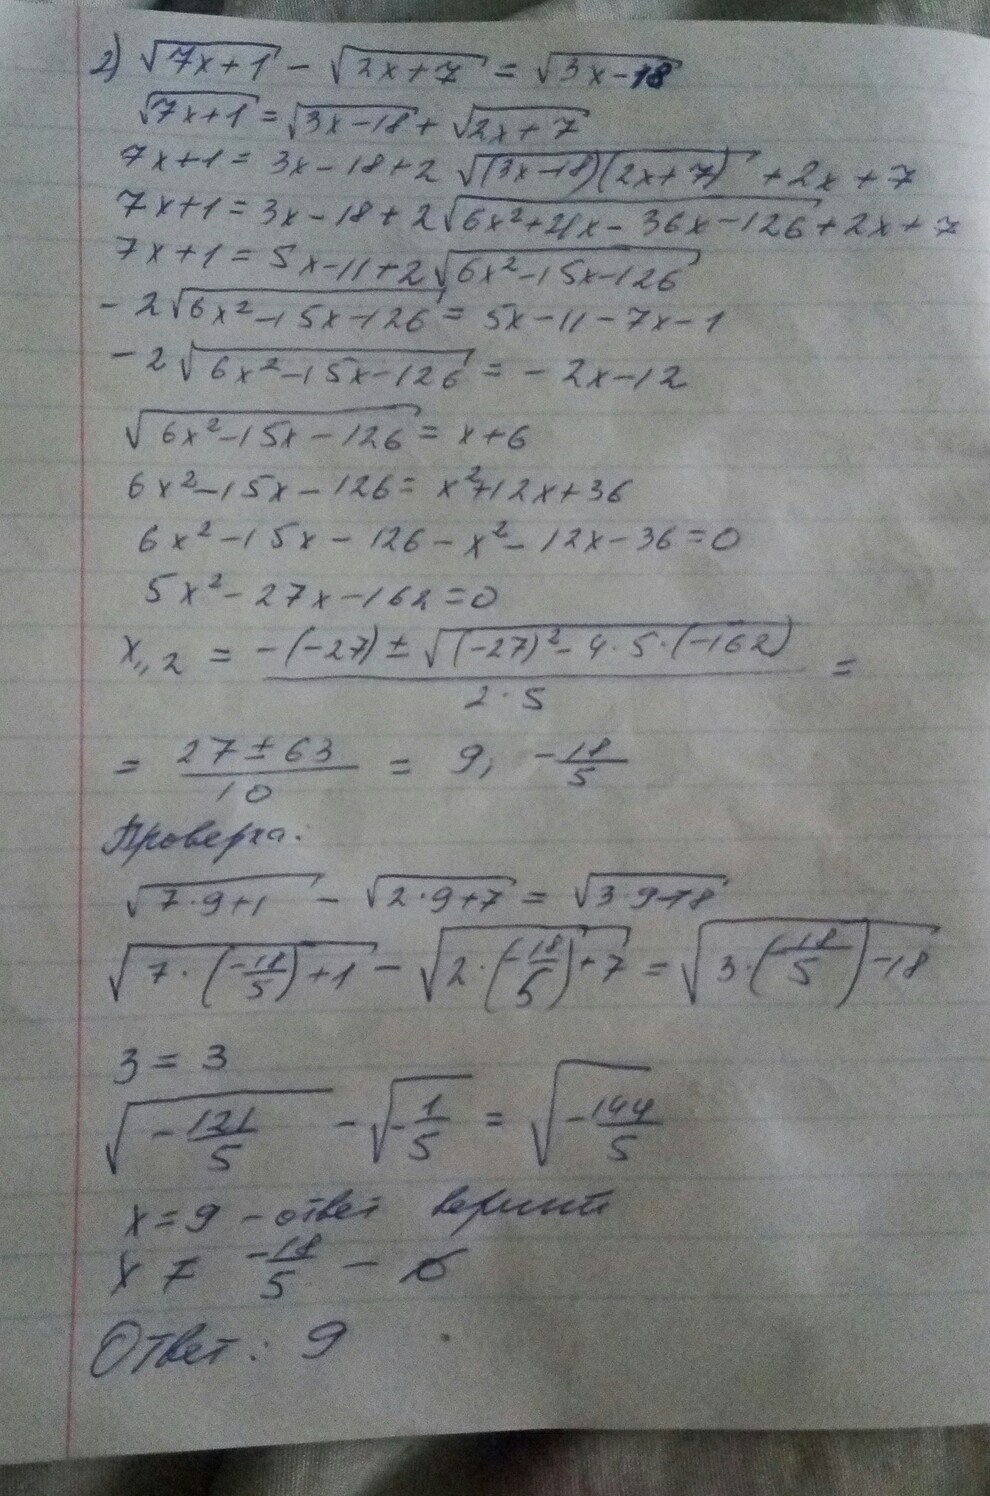 2) √(7x+1) - √(2x+7) = √(3x-18)
√(7x+1) = √(3x-18) + √(2x+7)
7x+1 = 3x-18+2 √((3x-18)(2x+7)) +2x+7
7x+1 = 3x-18+2√(6x²+21x-36x-126)+2x+7
7x+1 = 5x-11+2√(6x²-15x-126)
-2√(6x²-15x-126) = 5x-11-7x-1
-2√(6x²-15x-126) = -2x-12
√(6x²-15x-126) = x+6
6x²-15x-126 = x²+12x+36
6x²-15x-126-x²-12x-36=0
5x²-27x-162=0
x₁,₂ = (-(-27) ± √((-27)²-4·5·(-162)))/(2·5) =
= (27±63)/10 = 9; -18/5
Проверка:
√(7·9+1) - √(2·9+7) = √(3·9-18)
√(7·(-18/5)+1) - √(2·(-18/5)+7) = √(3·(-18/5)-18)
3 = 3
√(-121/5) - √(-1/5) = √(-144/5)
x=9 - ответ
x ≠ -18/5 -
Ответ: 9